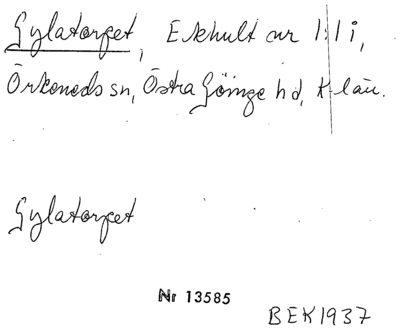 Gylatorpet, Ekhult nr 1:1 i,
Örkeneds sn, Östra Göinge hd, K-län.
Gylatorpet
Nr 13585
BEK1937